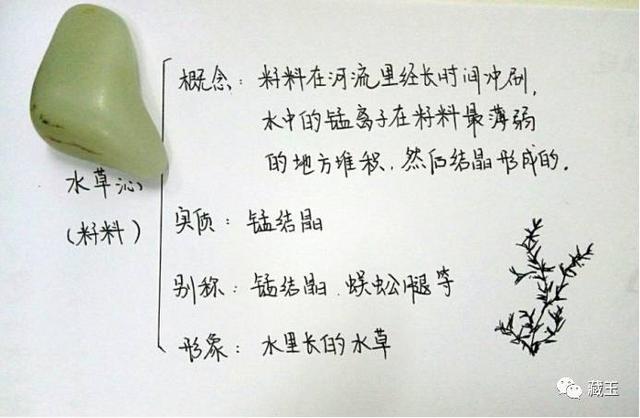 水草沁
(籽料)
概念：籽料在河流里经长时间冲刷,
水中的锰离子在籽料最薄弱
的地方堆积,然后结晶形成的.
实质：锰结晶
别称：锰结晶、蜈蚣腿等
形象：水里长的水草
藏玉